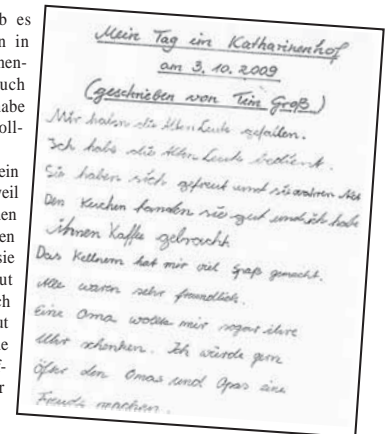 b es
n in
men-
uch
abe
oll-
ein
veil
en
en
sie
ut
ch
ut
e
f-
r
Mein Tag im Katharinenhof
am 3. 10. 2009
(geschrieben von Tim Groß)
Mir haben die Alten Leute gefallen.
Ich habe die Alten Leute bedient.
Sie haben sich gefreut und sie waren
Den Kuchen fanden sie gut und ich habe
ihnen Kaffe gebracht
Das Kellnern hat mir viel Spaß gemacht.
Alle waren sehr freundlich.
Eine Oma wollte mir sogar ihre
Uhr schenken. Ich würde gern
öfter den Omas und Opas eine
Freude machen.